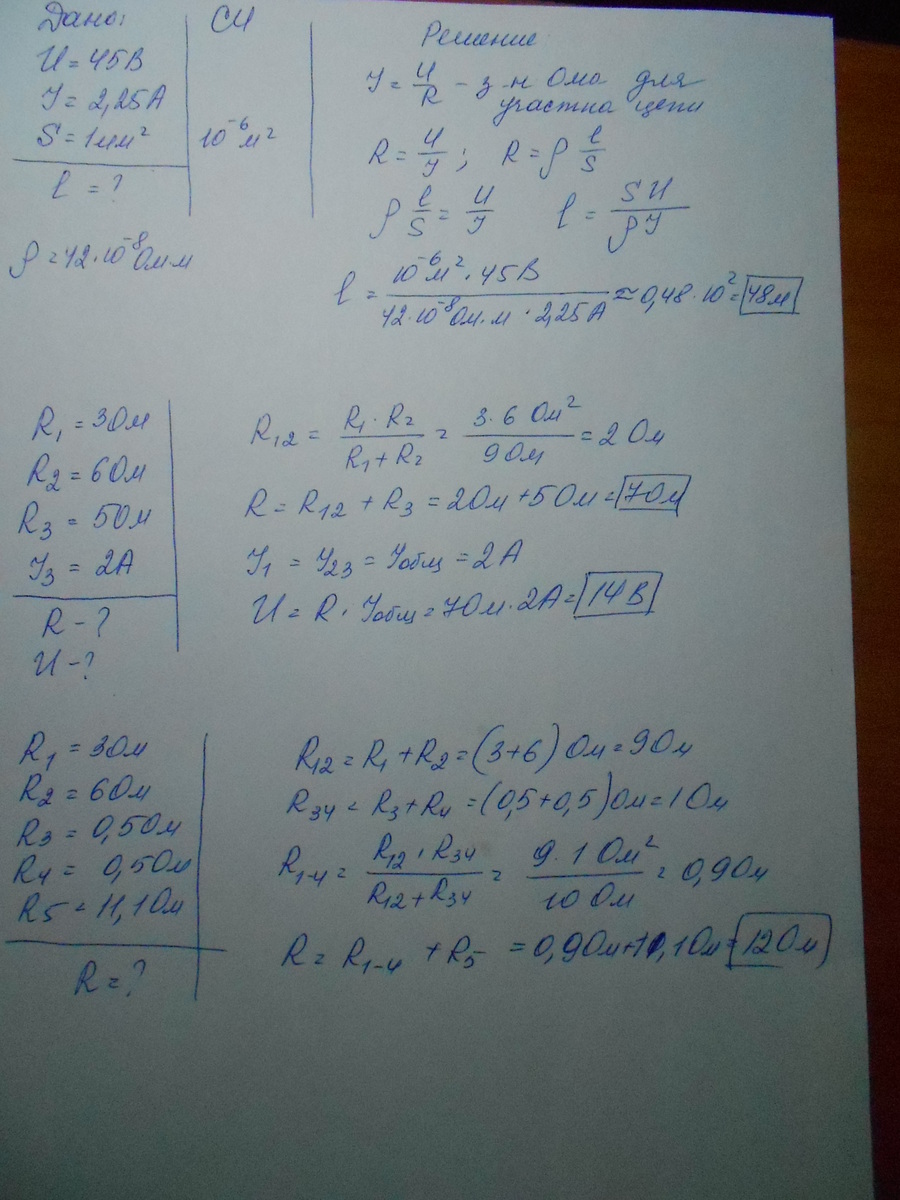 Дано:
СИ
U = 45В
I = 2,25А
S = 1мм²
10⁻⁶м²
l = ?
ρ = 42·10⁻⁸Ом м
Решение
I = U/R - з-н Ома для
участка цепи
R = U/I ; R = ρ l/S
ρ l/S = U/I l = SU/ρI
l = 10⁻⁶м² · 45В / 42·10⁻⁸Ом·м · 2,25А ≈ 0,48·10² = 48м
R₁ = 3Ом
R₂ = 6Ом
R₃ = 5Ом
I₃ = 2А
R - ?
U - ?
R₁₂ = R₁·R₂ / R₁+R₂ = 3·6 Ом² / 9Ом = 2Ом
R = R₁₂ + R₃ = 2Ом + 5Ом = 7Ом
I₁ = I₂₃ = Iобщ = 2А
U = R · Iобщ = 7Ом · 2А = 14В
R₁ = 3Ом
R₂ = 6Ом
R₃ = 0,5Ом
R₄ = 0,5Ом
R₅ = 11,1Ом
R = ?
R₁₂ = R₁ + R₂ = (3+6) Ом = 9Ом
R₃₄ = R₃ + R₄ = (0,5+0,5)Ом = 1Ом
R₁₋₄ = R₁₂·R₃₄ / R₁₂+R₃₄ = 9·1 Ом² / 10 Ом = 0,9Ом
R = R₁₋₄ + R₅ = 0,9Ом+11,1Ом = 12Ом